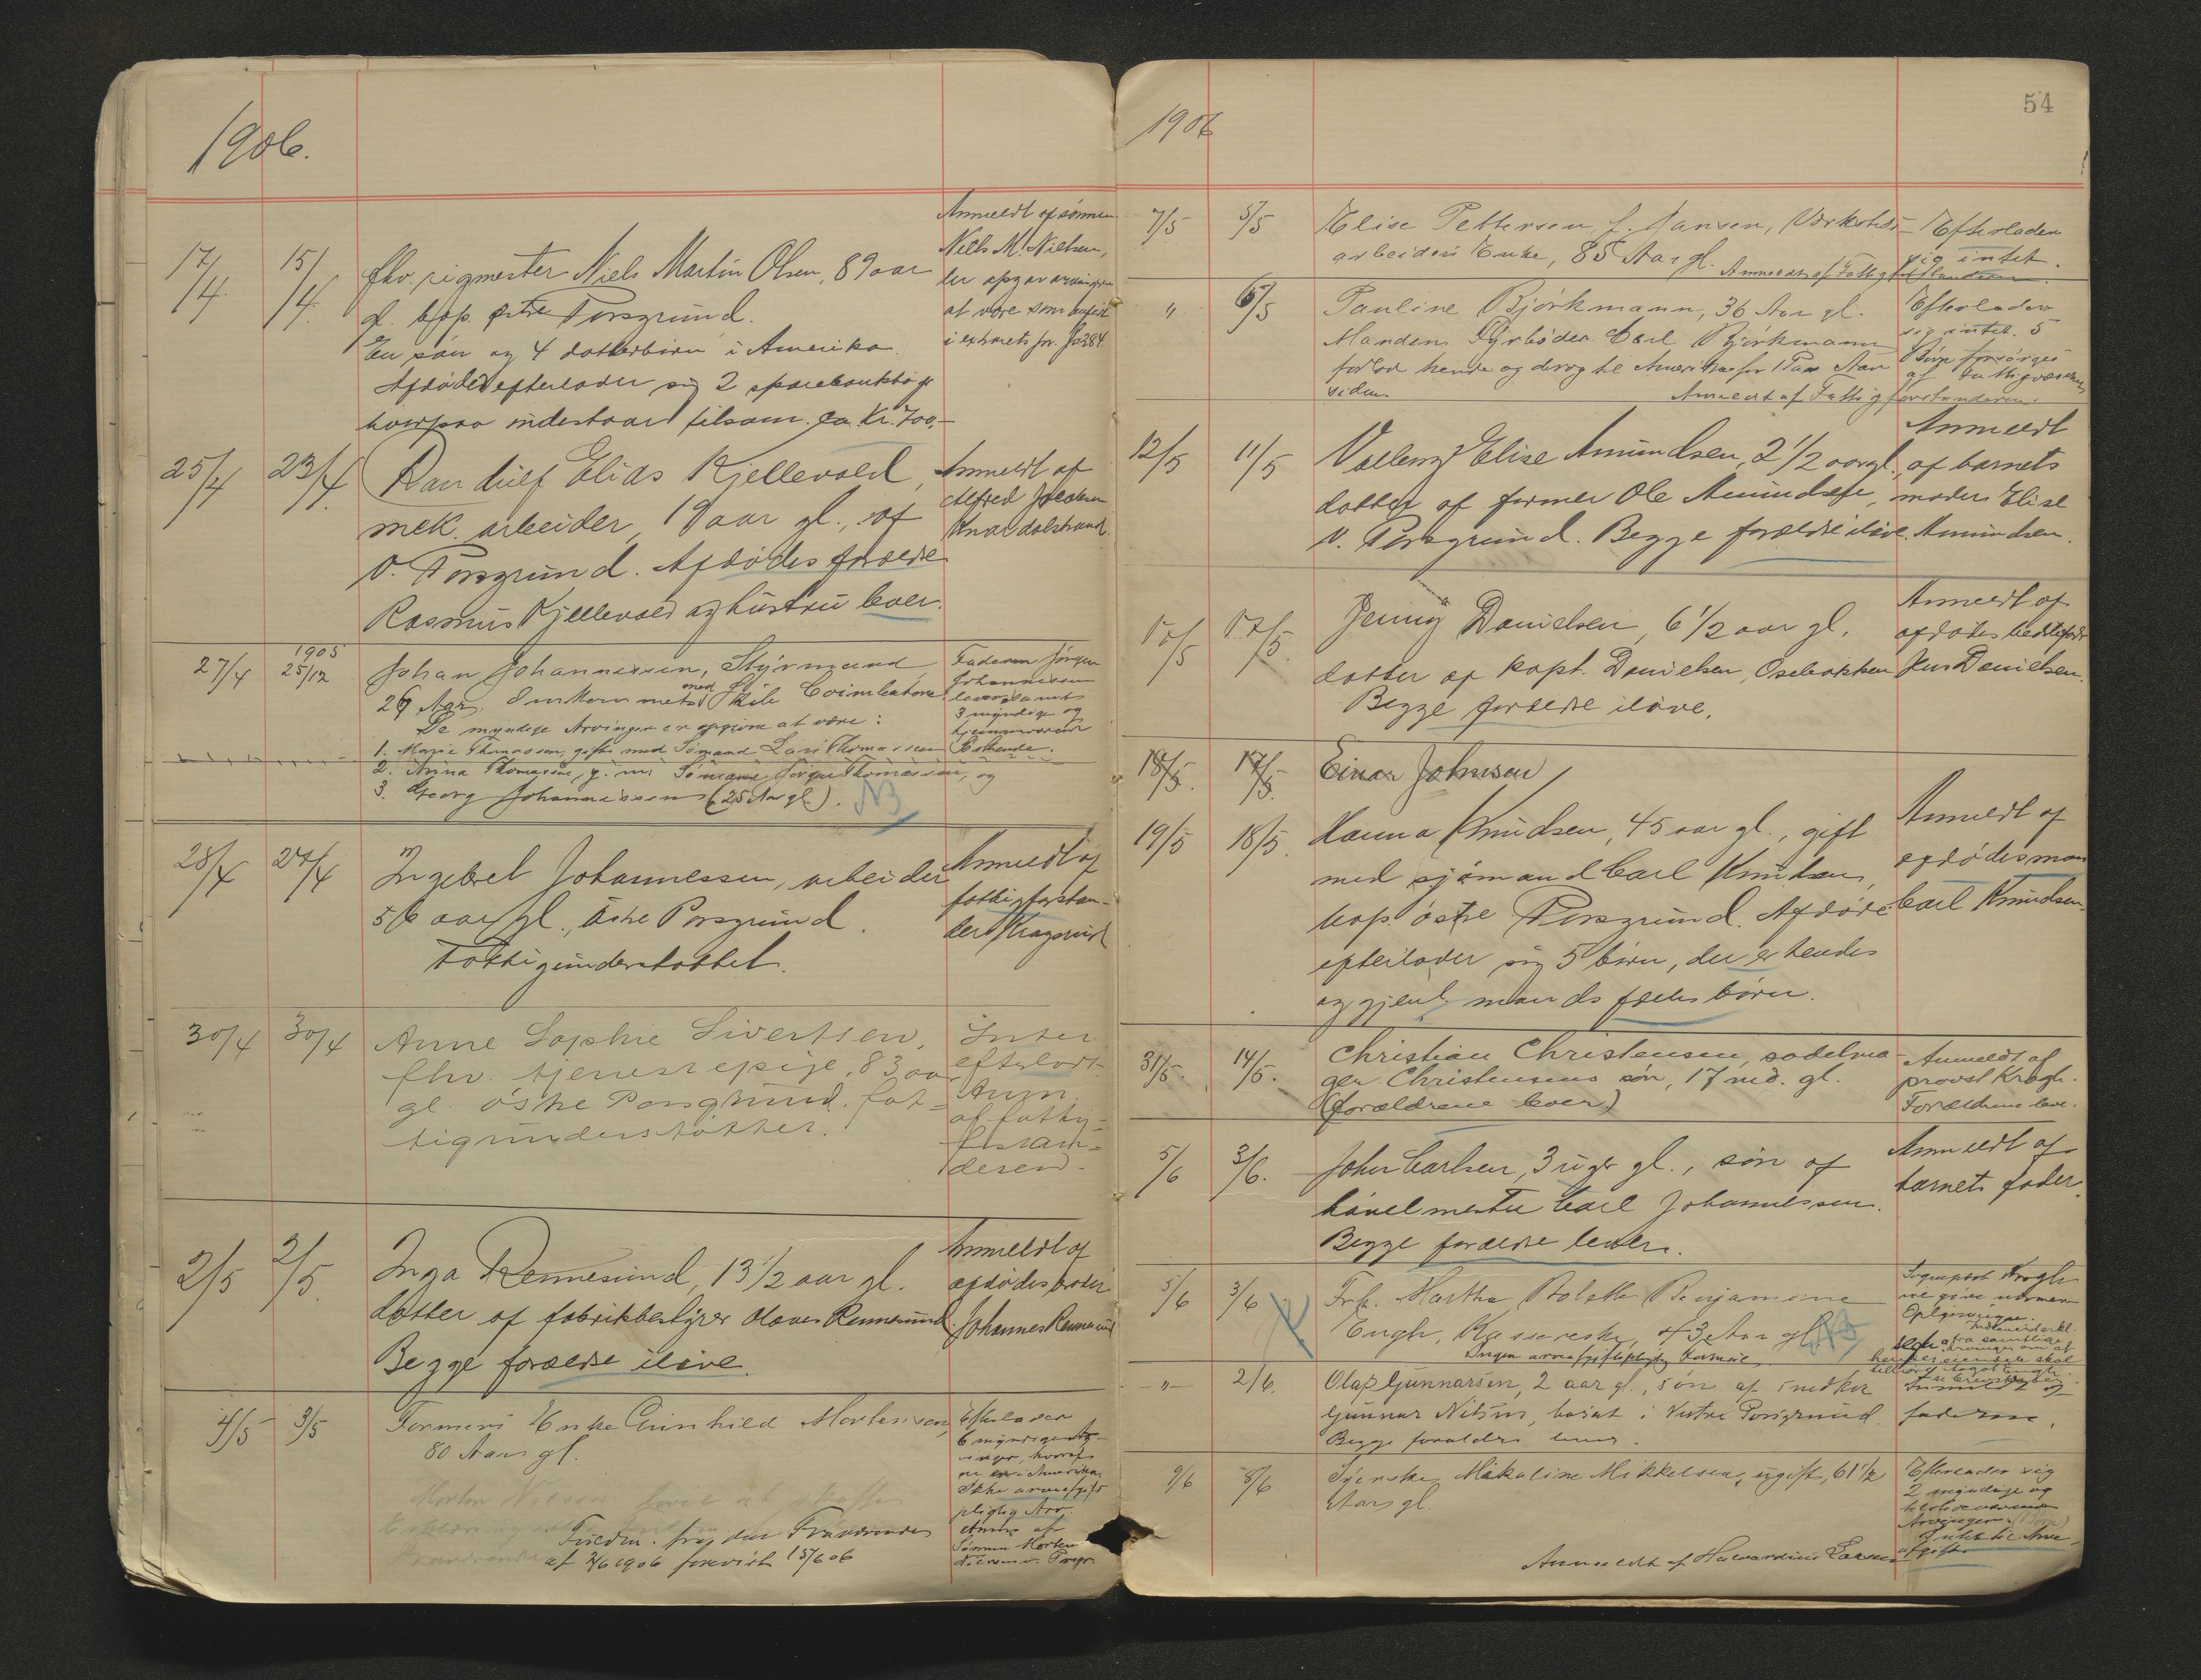 1906.
Anmeldt af sønnen
Niels M. Nielsen,
der opgav arvingerne
at være som anført
i extraets for
17/4 15/4 fhv. rigmester Niels Martin Olsen, 89 aar
gl. bop. østre Porsgrund.
En søn og 4 datterbørn i Amerika.
Afdøde efterlader sig 2 sparebankbøger
hvorpaa indestaar tilsam. ca. Kr. 700,-
25/4 23/4 Randulf Elias Kjellevold,
mek. arbeider, 19 aar gl., af
V. Porsgrund. Afdødes forældre
Rasmus Kjellevold og hustru lever.
Anmeldt af
Alfred Jacobsen
Knardalstrand.
27/4 1905 25/12 Johan Johannessen, Styrmand
26 Aar. Omkommet med Skib Coimbatore
De myndige Arvinger er opgivne at være:
1. Marie Thomassen, gift med Sømand Lars Thomassen
2. Anna Thomasine, g. m. Sømand Jørgen Thomassen, og
3. Georg Johannessen (25 Aar gl.). NB
Faderen Jørgen
Johannessen
lever samt
3 myndige og
hjemmeværende
Søskende.
28/4 27/4 Ingebret Johannessen, arbeider
56 aar gl., østre Porsgrund.
Fattigunderstøttet.
Anmeldt af
fattigforstan-
der Kragsrud
30/4 30/4 Anne Sophie Sivertsen,
fhv. tjenestepige, 83 aar
gl. østre Porsgrund. fat-
tigunderstøttet.
Intet
efterladt.
Anm.
af fattig-
forstan-
deren.
2/5 2/5. Inga Rennesund, 13 1/2 aar gl.
datter af fabrikbestyrer Olaves Rennesund.
Begge forældre ilive.
Anmeldt af
afdødes broder
Johannes Rennesund
4/5 3/5 Formers Enke Gunhild Mortensen,
80 Aar gl.
Morten Nielsen
Tiledn. fraj den Fraadrendes
af 2/6 1906 forevist 15/6 06
Efterlader
6 myndige Ar-
vinger, hvoraf
en er i Amerika.
Ikke arveafgifts
pligtig Arv.
Anm. af
Sønnen Morten
Nielsen Porsgr.
1906
54
7/5 5/5 Elise Pettersen f. Hansen, Værksteds-
arbeiders Enke, 85 Aar gl.
Anmeldt af Fattigforstanderen.
Efterlader
sig intet.
" 6/5 Pauline Bjørkmann, 36 Aar gl.
Manden Fyrbøder Carl Bjørkmann
forlod hende og drog til Amerika for 1 Par Aar
siden Anmeldt af Fattigforstanderen.
Efterlader
sig intet. 5
Børn forsørges
af Fattigvæsenet
12/5 11/5 Valborg Elise Amundsen, 2 1/2 aar gl.,
datter af former Ole Amundsen,
V. Porsgrund. Begge forældre ilive.
Anmeldt
af barnets
moder Elise
Amundsen.
Jenny Danielsen, 6 1/2 aar gl.
datter af kapt. Danielsen, Osebakken
Begge forældre ilive.
Anmeldt af
afdødes bedstefader
Jens Danielsen.
18/5. 17/5. Einar Johnsen
19/5 18/5. Hanna Knudsen, 45 aar gl., gift
med sjømand Carl Knudsen,
bop. østre Porsgrund. Afdøde
efterlader sig 5 børn, der er hendes
og gjenl. mands fælles børn.
Anmeldt af
afdødes mand
Carl Knudsen.
31/5. 14/5. Christian Christensen, sadelma-
ger Christensens søn, 17 md. gl.
(forældrene lever)
Anmeldt af
provst Krogh.
Forældrene leve.
5/6 3/6. John Carlsen, 3 uger gl., søn af
høvelmester Carl Johannessen.
Begge forældre lever.
Anmeldt af
barnets fader.
5/6 3/6 Frk. Martha Bolette Benjamine
Engh, Kassererske, 63 Aar gl. NB
Ingen arveafgiftspligtig Formue
Sogneprest Krogh
vil give nærmere
Oplysninger.
-"- 2/6. Olaf Gunnarsen, 2 aar gl., søn af snedker
Gunnar Nilsen, bosat i Vestre Porsgrund.
Begge forældre lever.
Anmeldt af
faderen.
9/6 8/6 Tjeneske Mikaline Mikkelsen, ugift, 61 1/2
Aar gl.
Anmeldt af Halvardine Larsen
Efterlader sig
2 myndige og
tilstedeværende
Arvinger. (Børn)
Intet til Arve-
afgift.